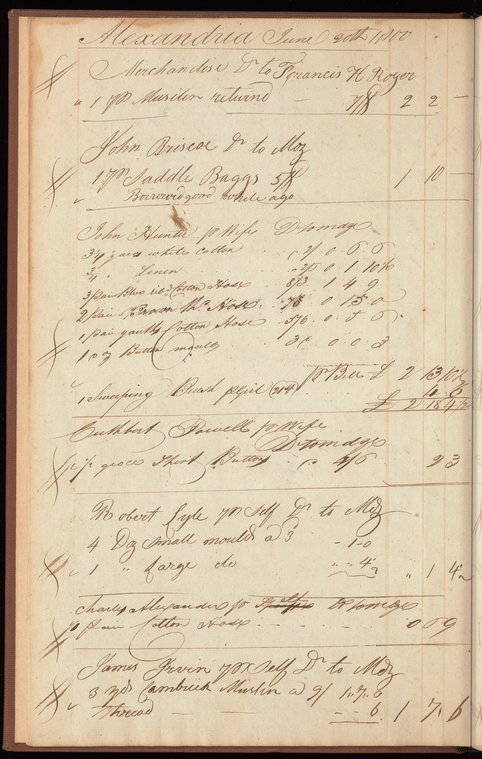 Alexandria June 20th 1800
Merchandise Dr to Francis H Royer
" 1 ps Muslin returnd — 7/8 2 2 —
John Briscoe Dr to Mdz
1 pr Saddle Baggs 5/4 1 10 —
Borrowed good while ago
John Hunter pr Wife Dr to mdze
3/4 yard white Cotton
3/4 " Linen
3 pair Cotton Hose 1 4 9
2 pair Hose 0 15 0
1 pair youths Cotton Hose
1 oz Button 0 0 3
pr Bill £ 2 13 10½
1 Sweeping Brush pr Girl 4 6
£ 2 18 4½
Cuthbert Powell pr Wife
Dr to mdze
groce Shirt Buttons 4/6 2 3
Robert Lyle pr Self Dr to Mdz
4 Doz small moulds a 3 - 1 - 0
1 " Large do " " 4½ " 1 4½
Charles Alexander pr Dr to mdze
pair Cotton Hose - - - - 0 0 9
James Irvin pr Self Dr to Mdz
3 yds Cambrick Muslin a 9/ 1. 7. 0
Thread — - - 6 1 7. 6